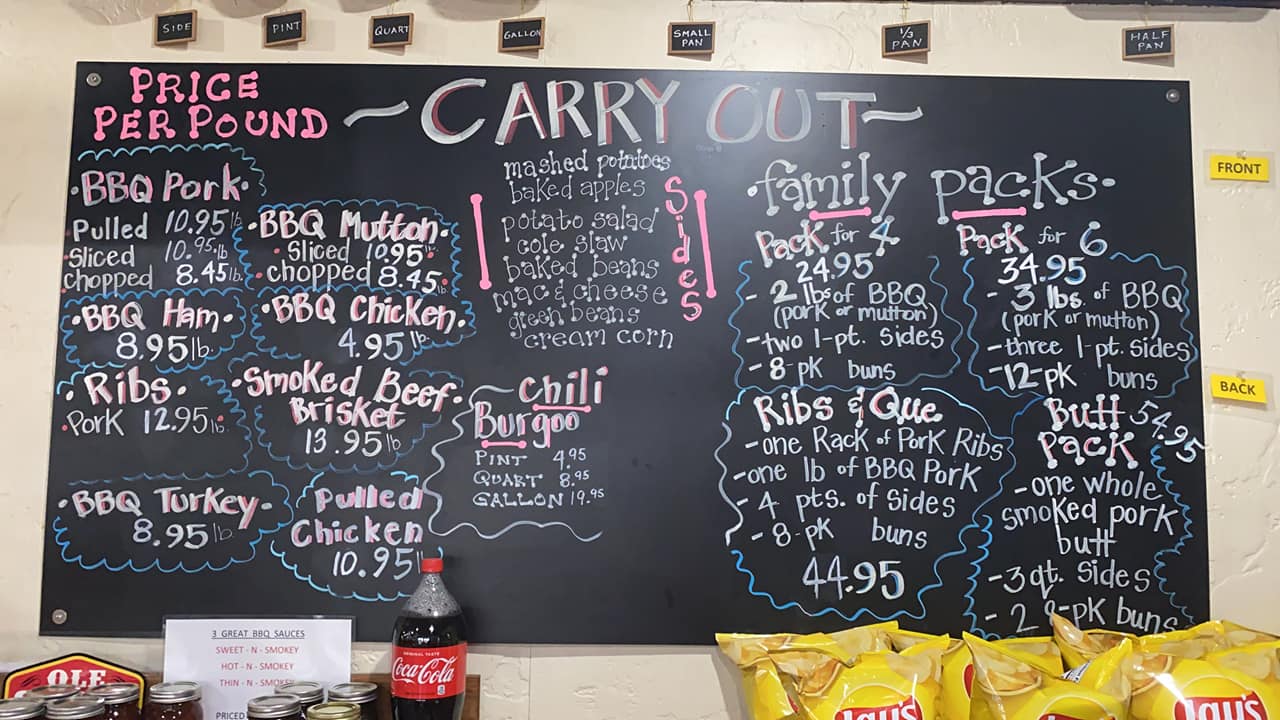 SIDE
PINT
QUART
GALLON
SMALL
PAN
1/3
PAN
HALF
PAN
PRICE
PER POUND
~CARRY OUT~
·BBQ Pork·
Pulled 10.95 lb
·Sliced 10.95 lb
chopped 8.45 lb.
·BBQ Mutton·
·Sliced 10.95·
·chopped 8.45·
·BBQ Ham·
8.95 lb.
·BBQ Chicken·
4.95 lb.
·Ribs·
·Pork 12.95 lb.
·Smoked Beef·
Brisket
13.95 lb
·BBQ Turkey·
8.95 lb.
Pulled
Chicken
10.95
mashed potatoes
baked apples
potato salad
cole slaw
baked beans
mac & cheese
green beans
cream corn
Sides
Chili
Burgoo
PINT 4.95
QUART 8.95
GALLON 19.95
·family packs·
Pack for 4
24.95
- 2 lbs of BBQ
(pork or mutton)
- two 1-pt. sides
- 8-pk buns
Pack for 6
34.95
- 3 lbs. of BBQ
(pork or mutton)
- three 1-pt. sides
- 12-pk buns
Ribs & Que
- one Rack of Pork Ribs
- one lb of BBQ Pork
- 4 pts. of sides
- 8-pk buns
44.95
Butt 54.95
Pack
- one whole
smoked pork
butt
- 3 qt. sides
- 2 8-pk buns
FRONT
BACK
3 GREAT BBQ SAUCES
SWEET - N - SMOKEY
HOT - N - SMOKEY
THIN - N - SMOKEY
PRICED
OLE
ORIGINAL TASTE
Coca-Cola
Lay's
Lay's